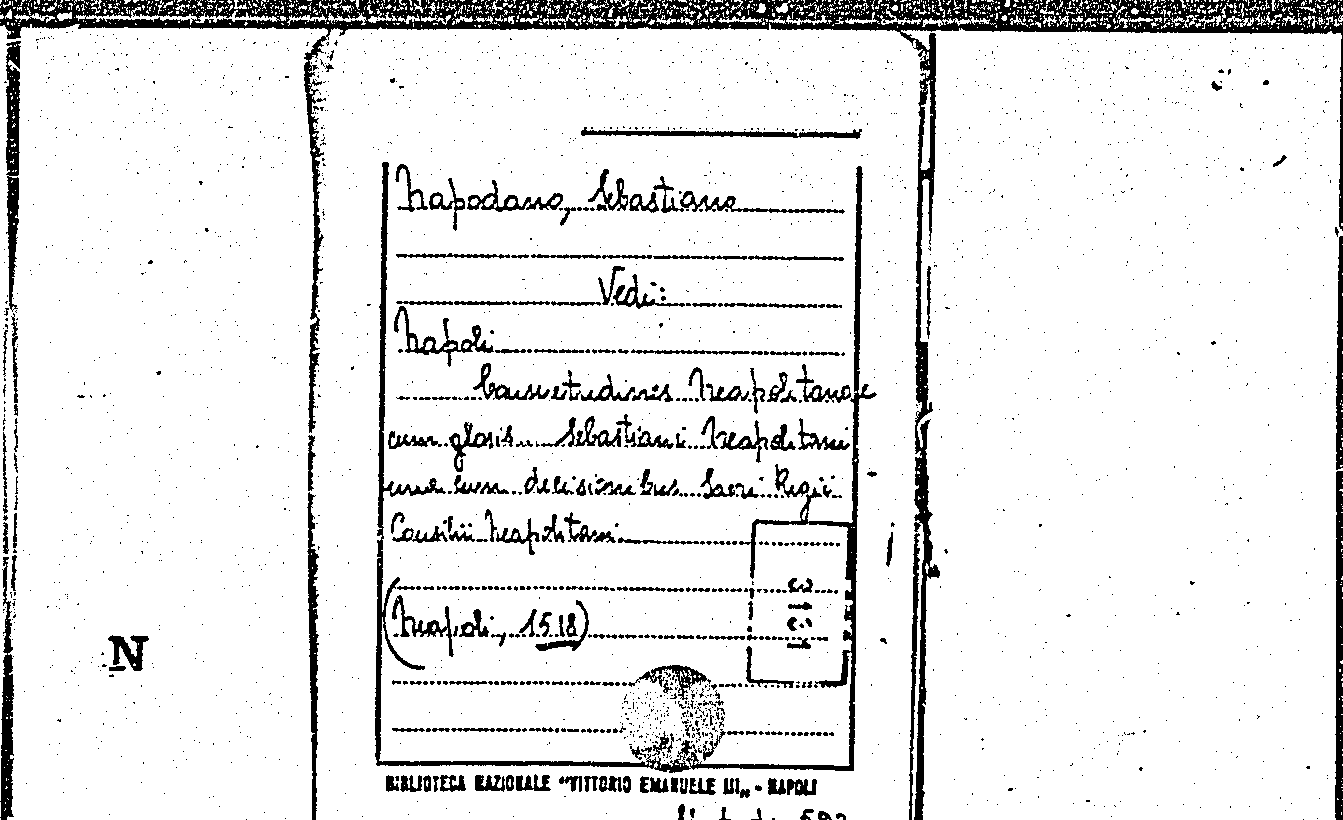 Napodano, Sebastiano
Vedi:
Napoli
Consuetudines Neapolitanae
cum glosis Sebastiani Neapolitani
una cum decisionibus Sacri Regii
Consilii Neapolitani.
(Neapoli, 1518)
N
BIBLIOTECA NAZIONALE "VITTORIO EMANUELE III„ - NAPOLI